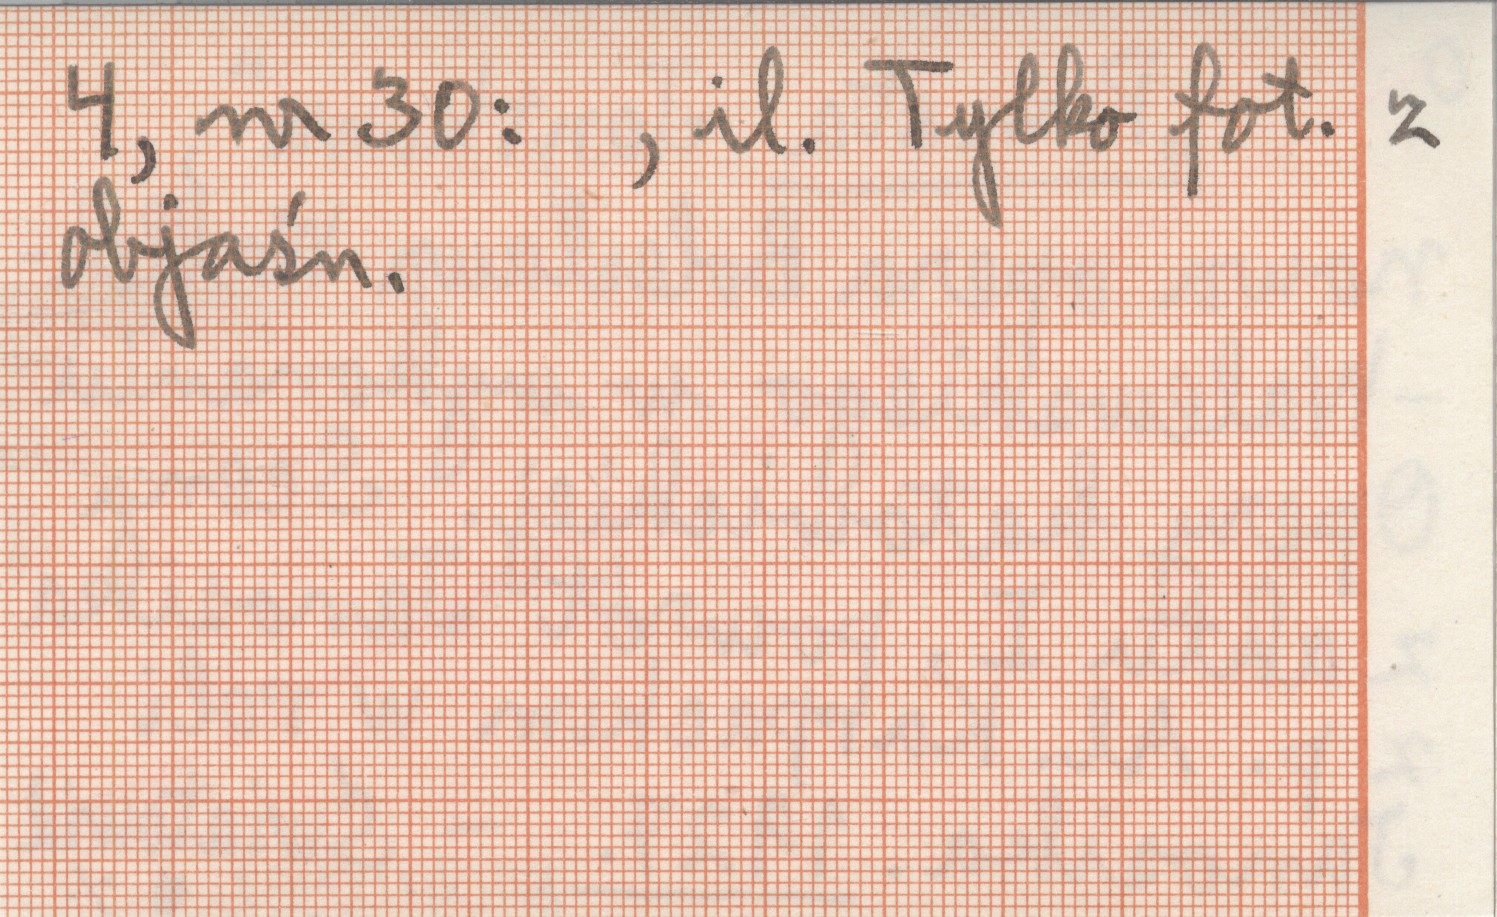 4, nr 30: , il. Tylko fot. z
objaśn.